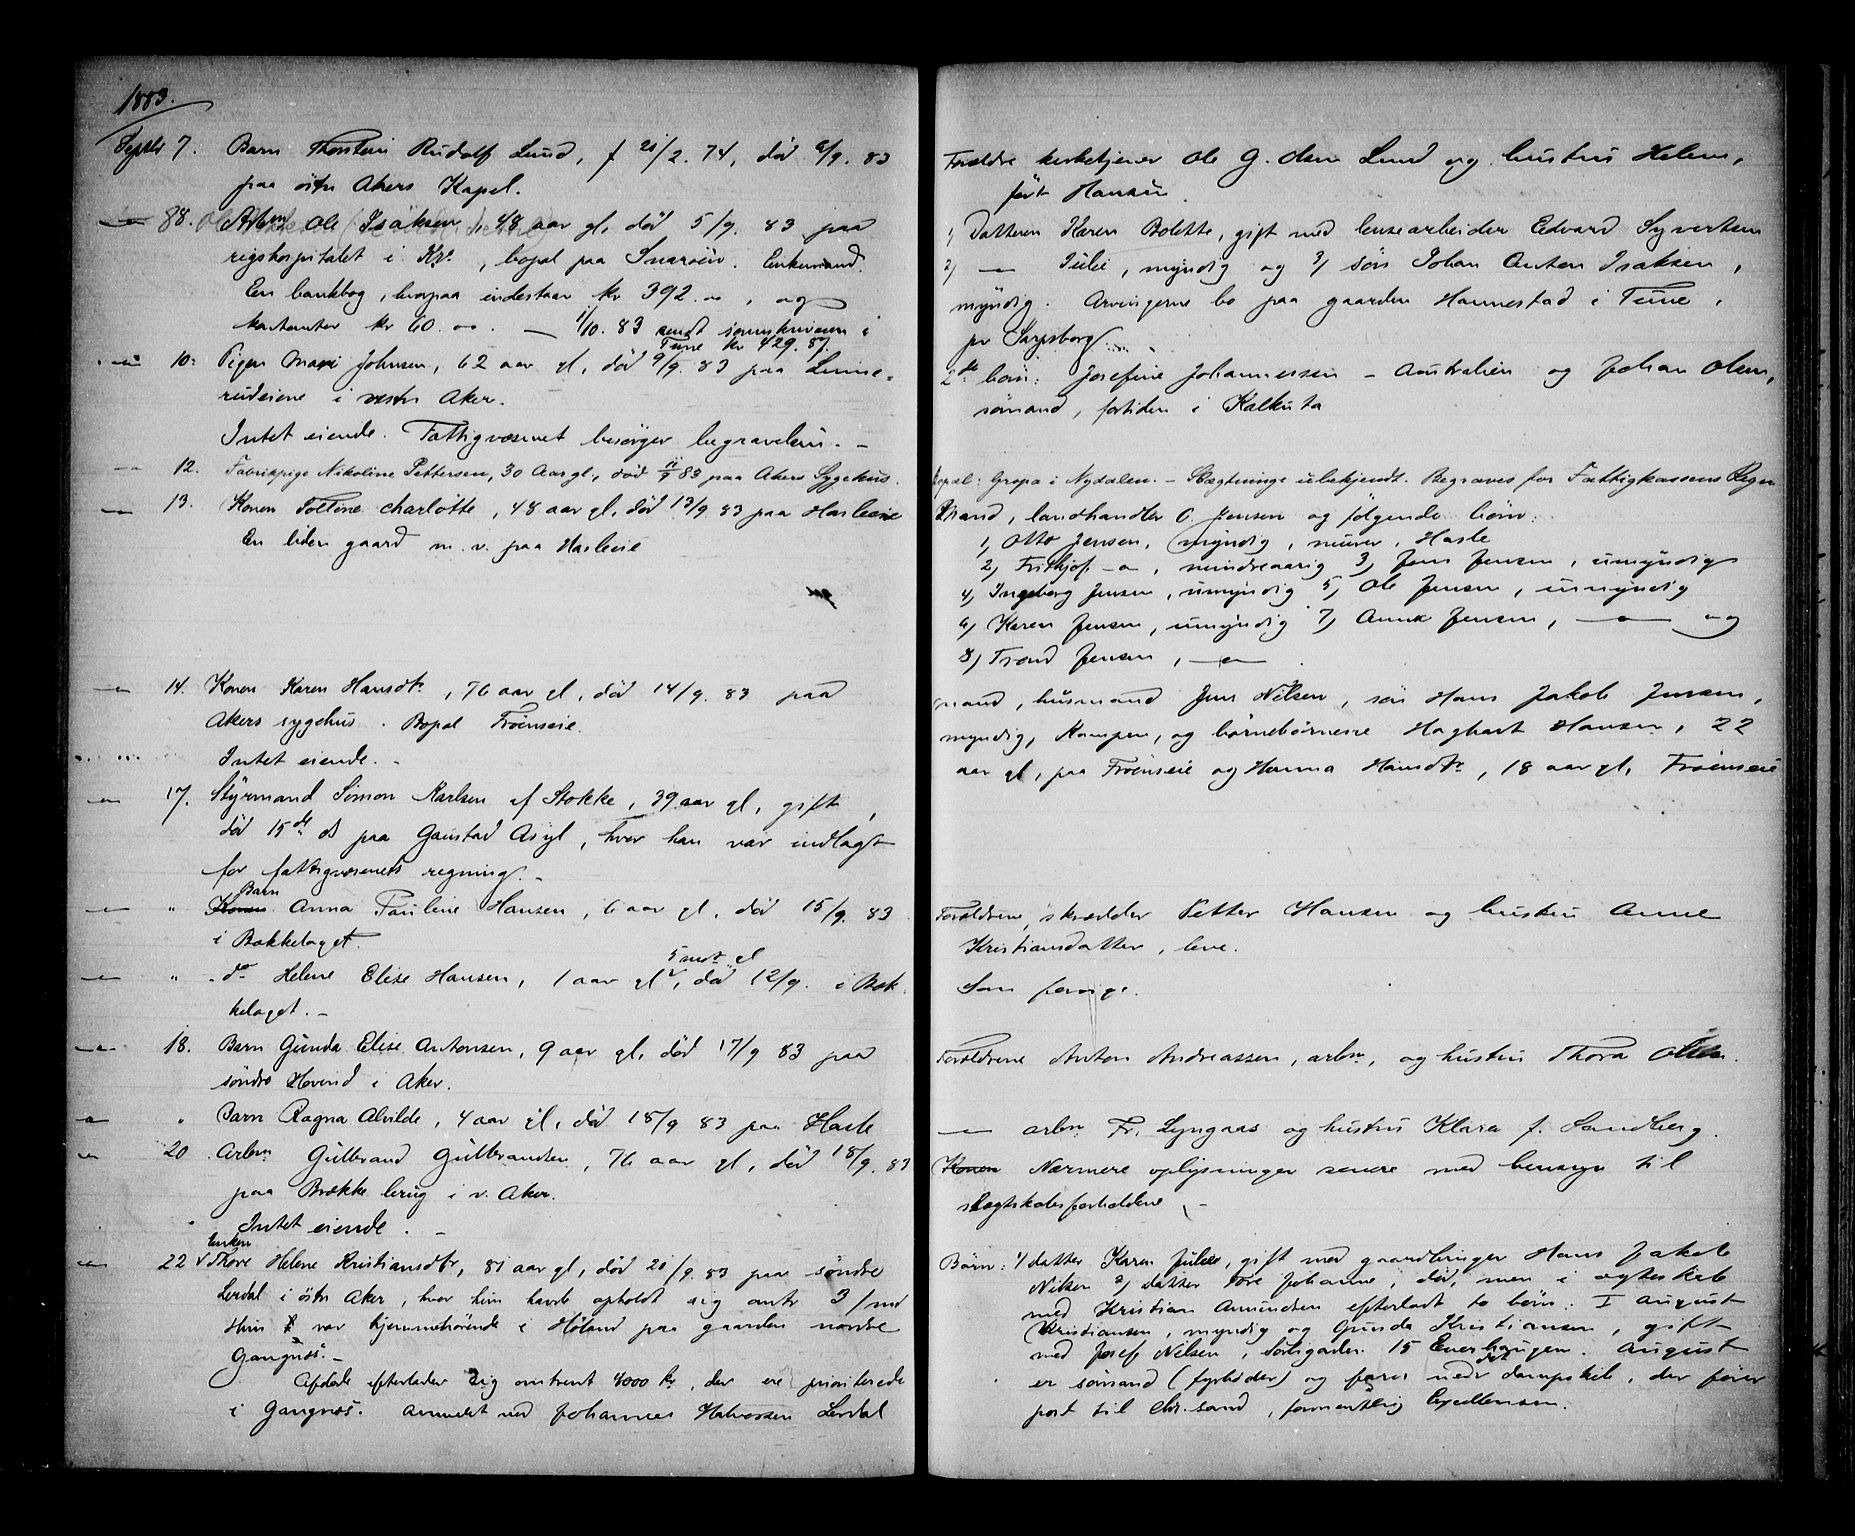 1883.
Septbr 7. Barn Thorstein Rudolf Lund, f 21/2. 74, død 6/9. 83
paa østre Akers Kapel.
— 88. Arbm Ole Isaksen, 48 aar gl, død 5/9. 83 paa
rigshospitalet i Kr.a, bopæl paa Snarøen. Enkemand.
En bankbog, hvorpaa indestaar kr 392.00, og
kontanter kr 60.00. — 1/10. 83 sendt sorenskriveren i
Tune kr 429. 87.
— 10. Pigen Mari Johnsen, 62 aar gl, død 9/9. 83 paa Linne-
rudeiene i vestre Aker.
Intet eiende. Fattigvæsenet besørger begravelsen. –
— 12. Fabrikpige Nikoline Pettersen, 30 Aar gl., død 11/9 83 paa Akers Sygehus.
— 13. Konen Toltine Charlotte, 48 aar gl, død 13/9. 83 paa Hasleeie
En liden gaard m. v. paa Hasleeie
— 14. Konen Karen Hansdtr, 76 aar gl, død 14/9. 83 paa
Akers sygehus. Bopæl Frøenseie.
Intet eiende. –
— 17. Styrmand Simon Karlsen af Stokke, 39 aar gl, gift,
død 15de ds paa Gaustad Asyl, hvor han var indlagt
for fattigvæsenets regning. –
Barn
— " Konen Anna Pauline Hansen, 6 aar gl, død 15/9. 83
i Bækkelaget.
5 mdr gl
— " do Helene Elise Hansen, 1 aar gl, død 12/9. i Bæk-
kelaget. –
— 18. Barn Gunda Elise Antonsen, 9 aar gl, død 17/9 83 paa
søndre Hovind i Aker.
— " Barn Ragna Alvilde, 4 aar gl, død 18/9 83 paa Hasle
— 20. Arbm Gulbrand Gulbrandsen, 76 aar gl, død 18/9. 83
paa Brække brug i v. Aker.
Intet eiende. –
Enken
— 22 Thore Helene Kristiansdtr, 81 aar gl, død 21/9. 83 paa søndre
Lerdal i østre Aker, hvor hun havde opholdt sig omtr 3/md
Hun var hjemmehørende i Høland paa gaarden nordre
Gangnæs. –
Afdøde efterlader sig omtrent 4000 kr, der ere prioriterede
i Gangnæs. Anmeldt ved Johannes Halvorsen Lerdal
Forældre kirketjener Ole G. Olsen Lund og hustru Helene,
født Hansen
1, Datteren Karen Bolette, gift med lensearbeider Edvard Syvertsen
2, — Julie, myndig og 3, søn Johan Anton Isaksen,
myndig. Arvingerne bo paa gaarden Hannestad i Tune,
pr Sarpsborg
2de børn: Josefine Johannessen – Australien og Johan Olsen,
sømand, fortiden i Kalkuta
Bopæl: Gropa i Nydalen. – Slægtninge ubekjendt. Begraves for Fattigkassens Regn
Mand, landhandler C. Jensen og følgende børn:
1, Otto Jensen, myndig, murer, Hasle
2, Fritjof —, mindreaarig 3, Jens Jensen, umyndig
4, Ingeborg Jensen, umyndig 5, Ole Jensen, umyndig
6, Karen Jensen, umyndig 7, Anna Jensen, — og
8, Trond Jensen, —
mand, husmand Jens Nilsen, søn Hans Jakob Jensen,
myndig, Kampen, og børnebørnene Hagbart Hansen, 22
aar gl, paa Frøenseie og Hanna Hansdtr, 18 aar gl, Frøenseie
Forældrene, skrædder Petter Hansen og hustru Anne
Kristiansdatter, leve.
Som forrige.
Forældrene Anton Andreassen, arbm, og hustru Thora Olsen.
— arbm Fr. Lyngaas og hustru Klara f. Sandberg.
Konen Nærmere oplysninger senere med hensyn til
slægtskabsforholdene –
Børn: 1, datter Karen Julie, gift med gaardbruger Hans Jakob
Nilsen 2, datter Tore Johanne, død, men i ægteskab
med Kristian Amundsen efterladt to børn: I August
Kristiansen, myndig og Gunda Kristiansen, gift
med Josef Nilsen, 15 Enerhaugen. August
er sømand (fyrbøder) og farer med det dampskib, der fører
post til Chr.sand, formentlig Excellensen.